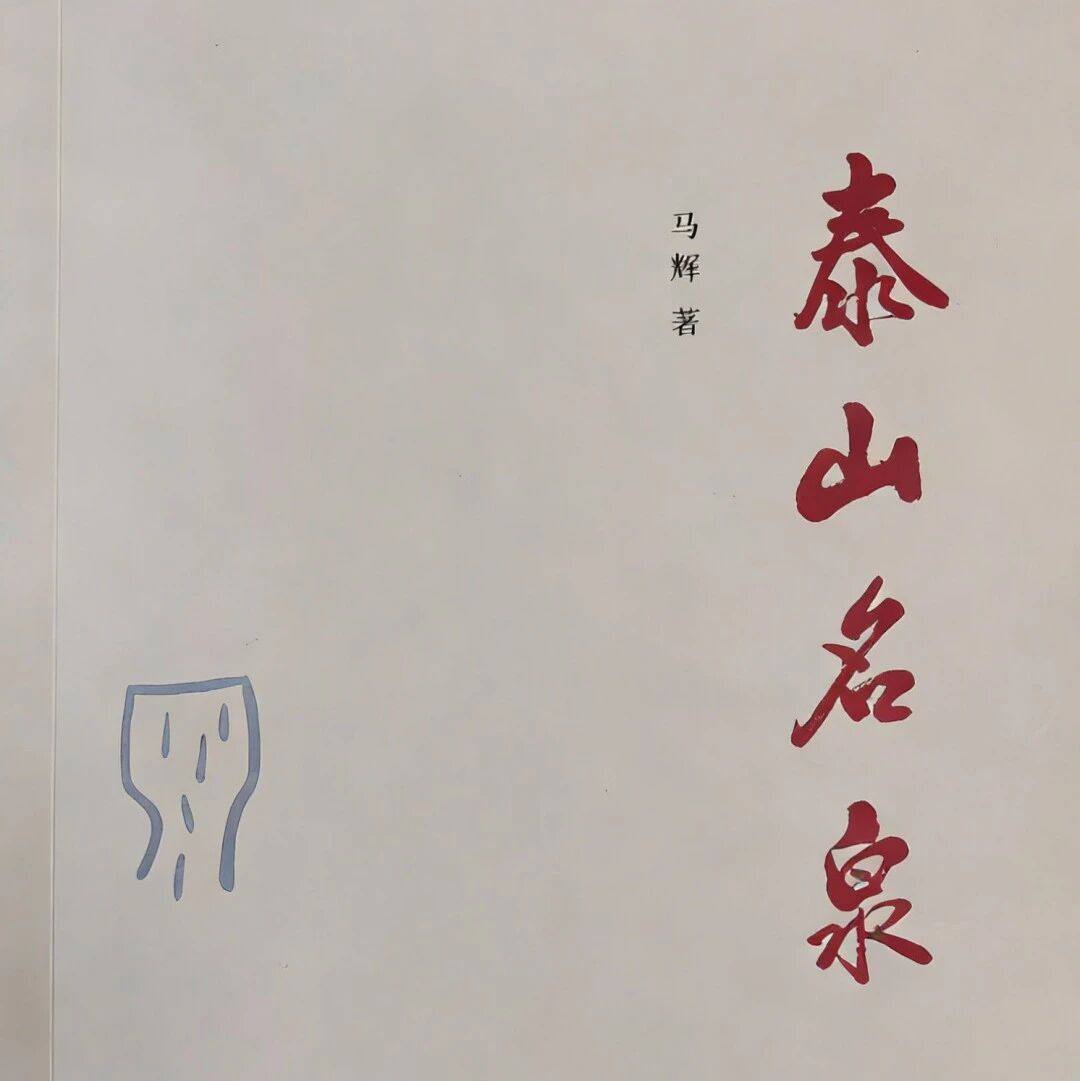 泰山名泉
马辉 著